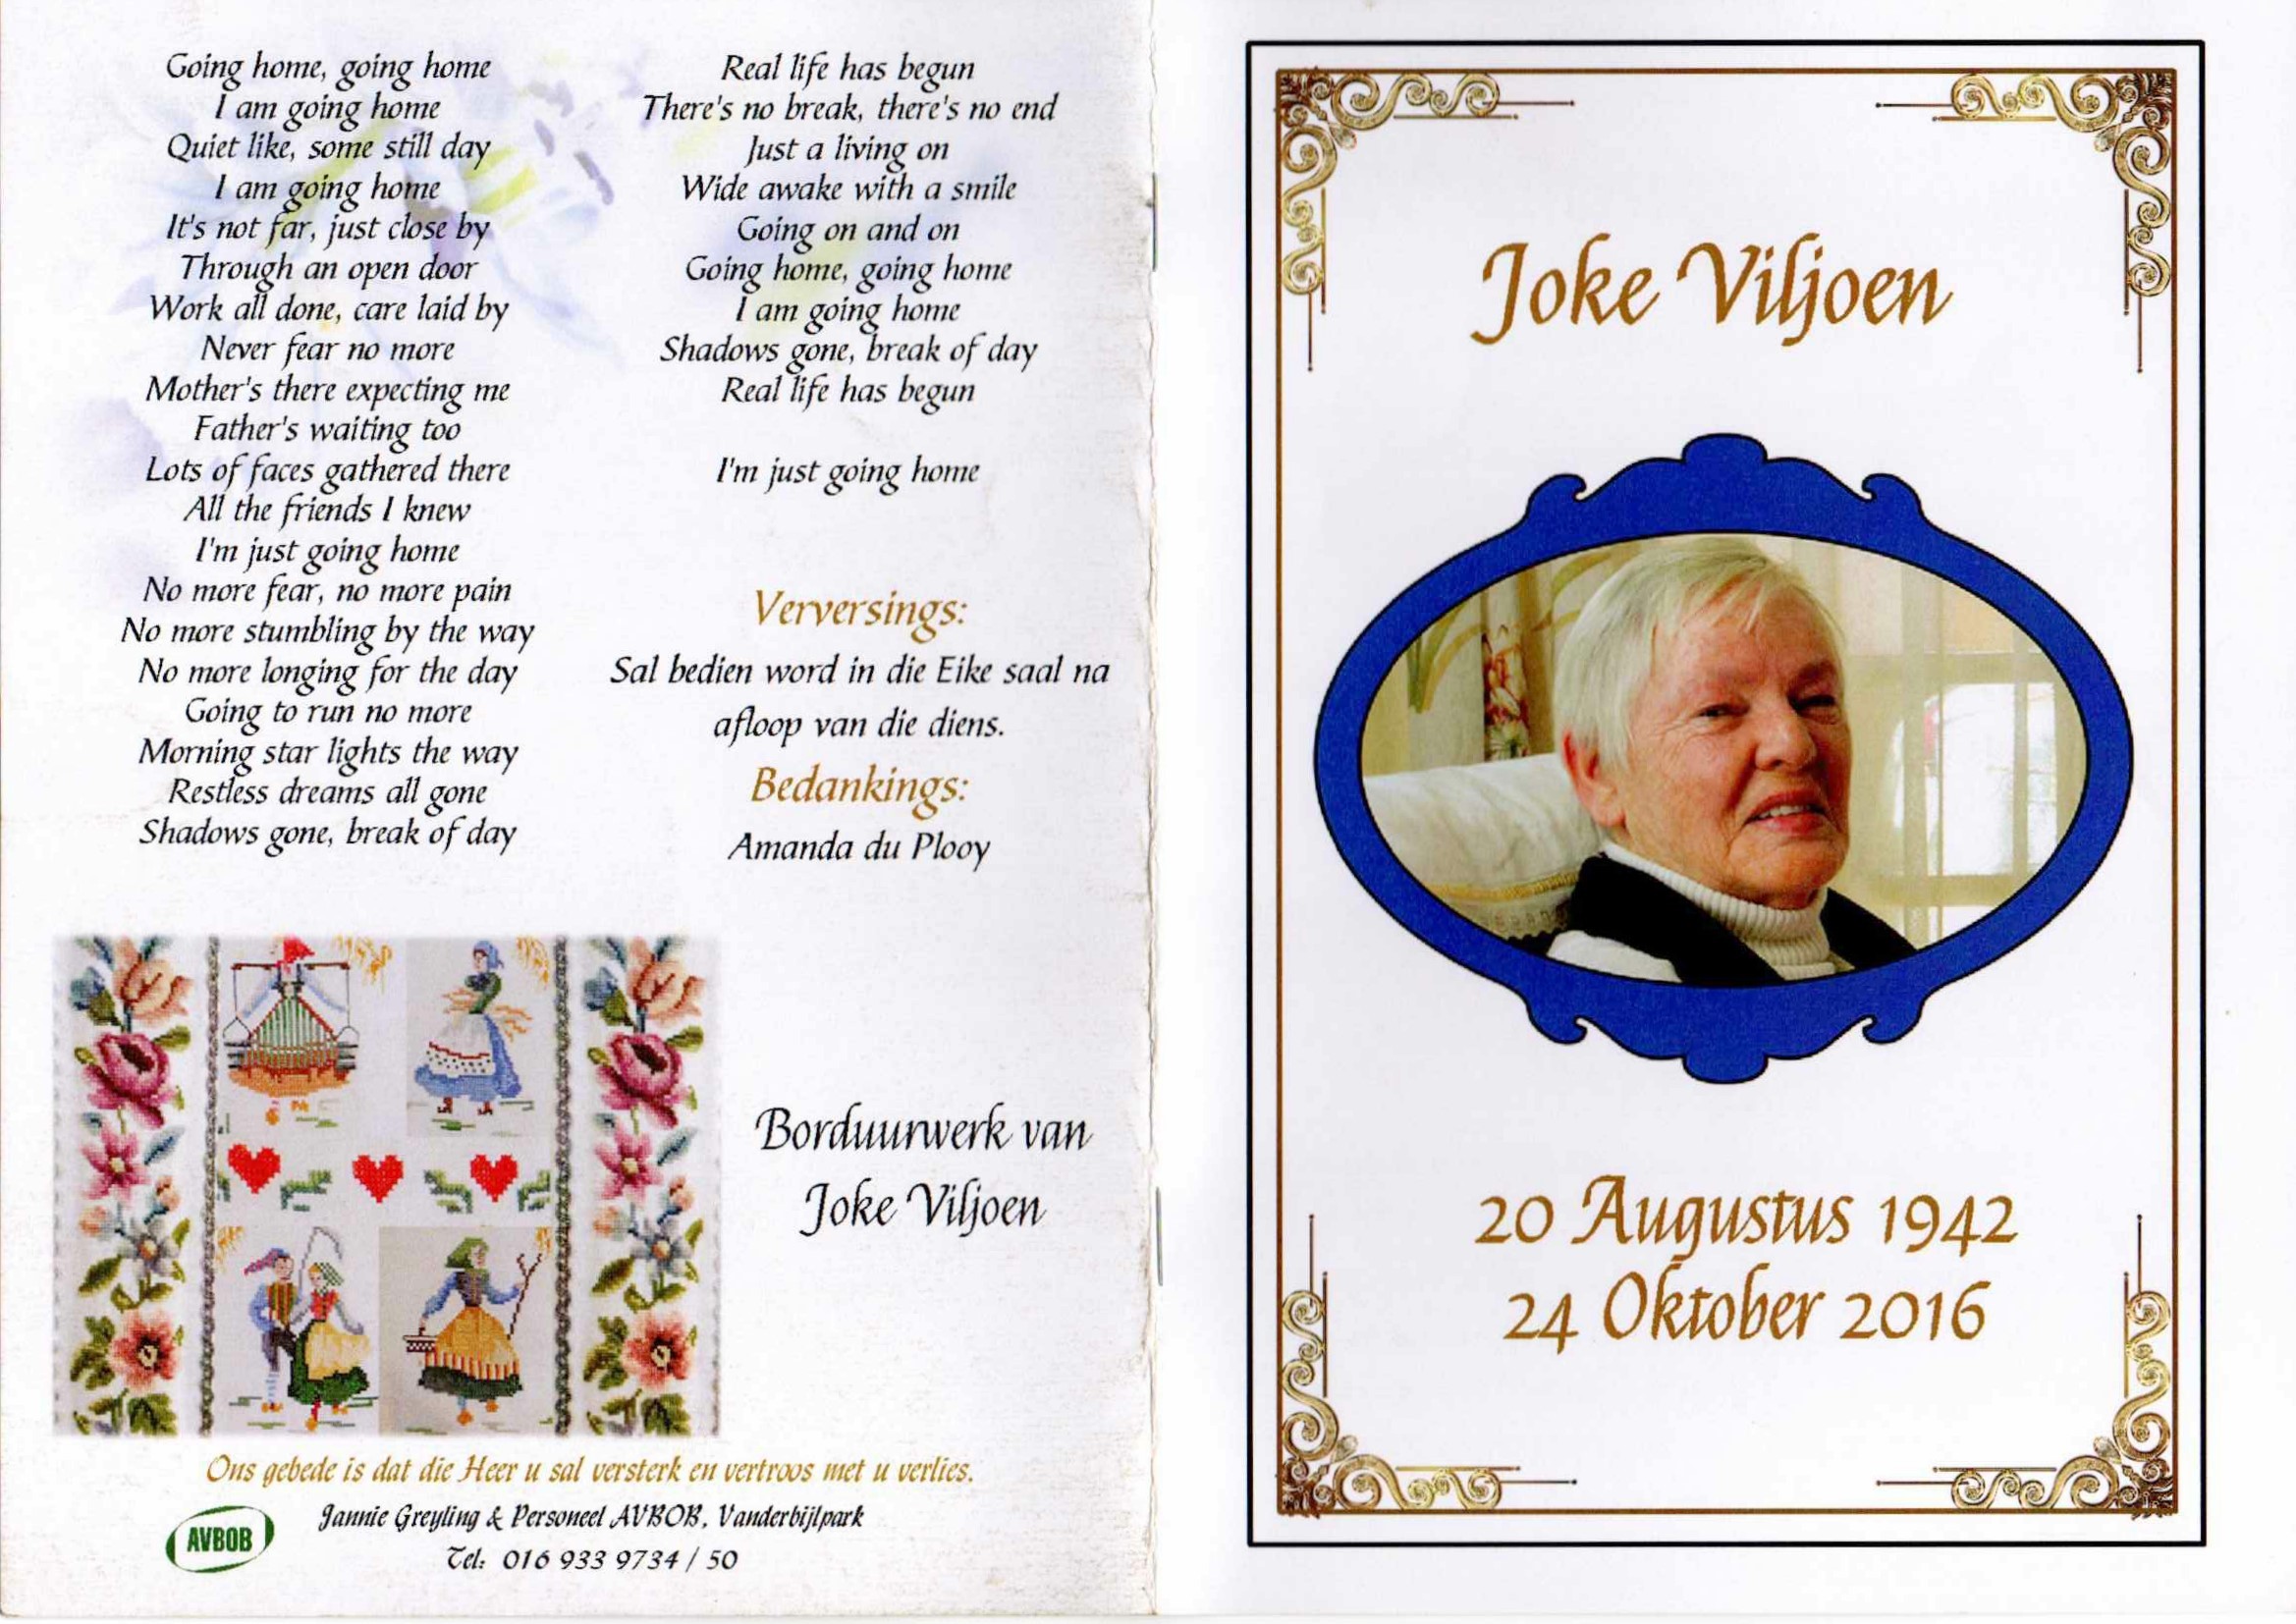 Going home, going home
I am going home
Quiet like, some still day
I am going home
It's not far, just close by
Through an open door
Work all done, care laid by
Never fear no more
Mother's there expecting me
Father's waiting too
Lots of faces gathered there
All the friends I knew
I'm just going home
No more fear, no more pain
No more stumbling by the way
No more longing for the day
Going to run no more
Morning star lights the way
Restless dreams all gone
Shadows gone, break of day
Real life has begun
There's no break, there's no end
Just a living on
Wide awake with a smile
Going on and on
Going home, going home
I am going home
Shadows gone, break of day
Real life has begun
I'm just going home
Verversings:
Sal bedien word in die Eike saal na
afloop van die diens.
Bedankings:
Amanda du Plooy
Borduurwerk van
Joke Viljoen
Ons gebede is dat die Heer u sal versterk en vertroos met u verlies.
AVBOB
Jannie Greyling & Personeel AVBOB, Vanderbijlpark
Tel: 016 933 9734 / 50
Joke Viljoen
20 Augustus 1942
24 Oktober 2016